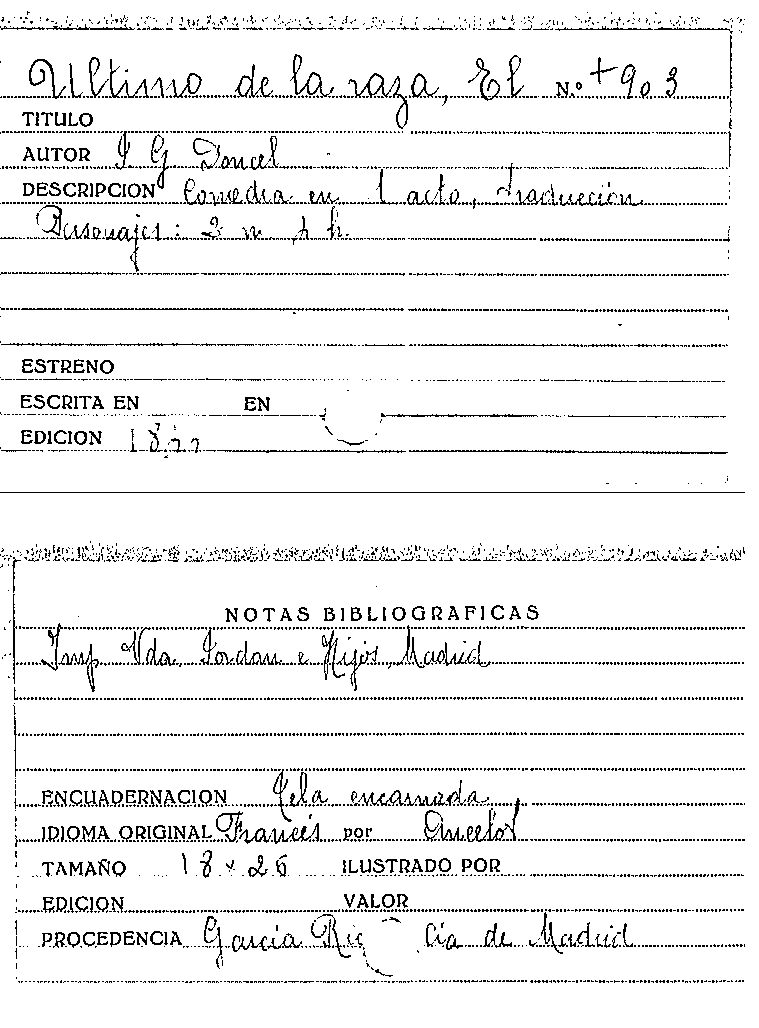 Ultimo de la raza, El N.º +903
TITULO
AUTOR I G Doncel
DESCRIPCION Comedia en 1 acto, traducción
Personajes: 2 m h
ESTRENO
ESCRITA EN EN
EDICION
NOTAS BIBLIOGRAFICAS
Imp Vda Jordan e Hijos, Madrid
ENCUADERNACION Tela encarnada
IDIOMA ORIGINAL Francés por Ancelot
TAMAÑO 18 x 26 ILUSTRADO POR
EDICION VALOR
PROCEDENCIA Garcia Cía de Madrid